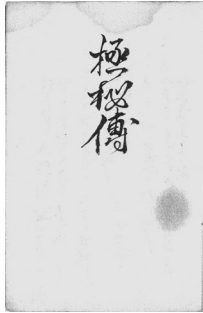 極秘傳